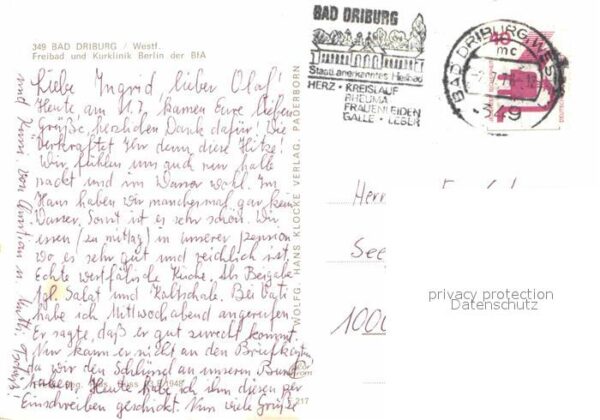 349 BAD DRIBURG / Westf.
Freibad und Kurklinik Berlin der BfA
Liebe Ingrid lieber Olaf!
Heute am 11.7. kamen Eure lieben
Grüße, herzlichen Dank dafür! Wie
verkraftet Ihr denn diese Hitze!
Wir fühlen uns auch nur halb
nackt und im Wasser wohl. Im
Haus haben wir manchmal gar kein
Wasser. Sonst ist es sehr schön. Wir
essen (zu mittag) in unserer pension
wo es sehr gut und reichlich ist.
Echte westfälische Küche. Als Beigabe
tgl. Salat und Kaltschale. Bei Vati
habe ich Mittwochabend angerufen.
Er sagte, daß er gut zurecht kommt.
Nur kann er nicht an den Briefkasten
da wir den Schlüssel an unserem Bund
haben. Heute habe ich ihm diesen per
Einschreiben geschickt. Nun viele Grüße
und von u. Mutti
WOLFG. HANS KLOCKE VERLAG, PADERBORN
217
BAD DRIBURG
Staatl. anerkanntes Heilbad
HERZ · KREISLAUF
RHEUMA
FRAUENLEIDEN
GALLE · LEBER
BAD DRIBURG, WESTF
mc
349
40
Herrn
See
1000
privacy protection
Datenschutz